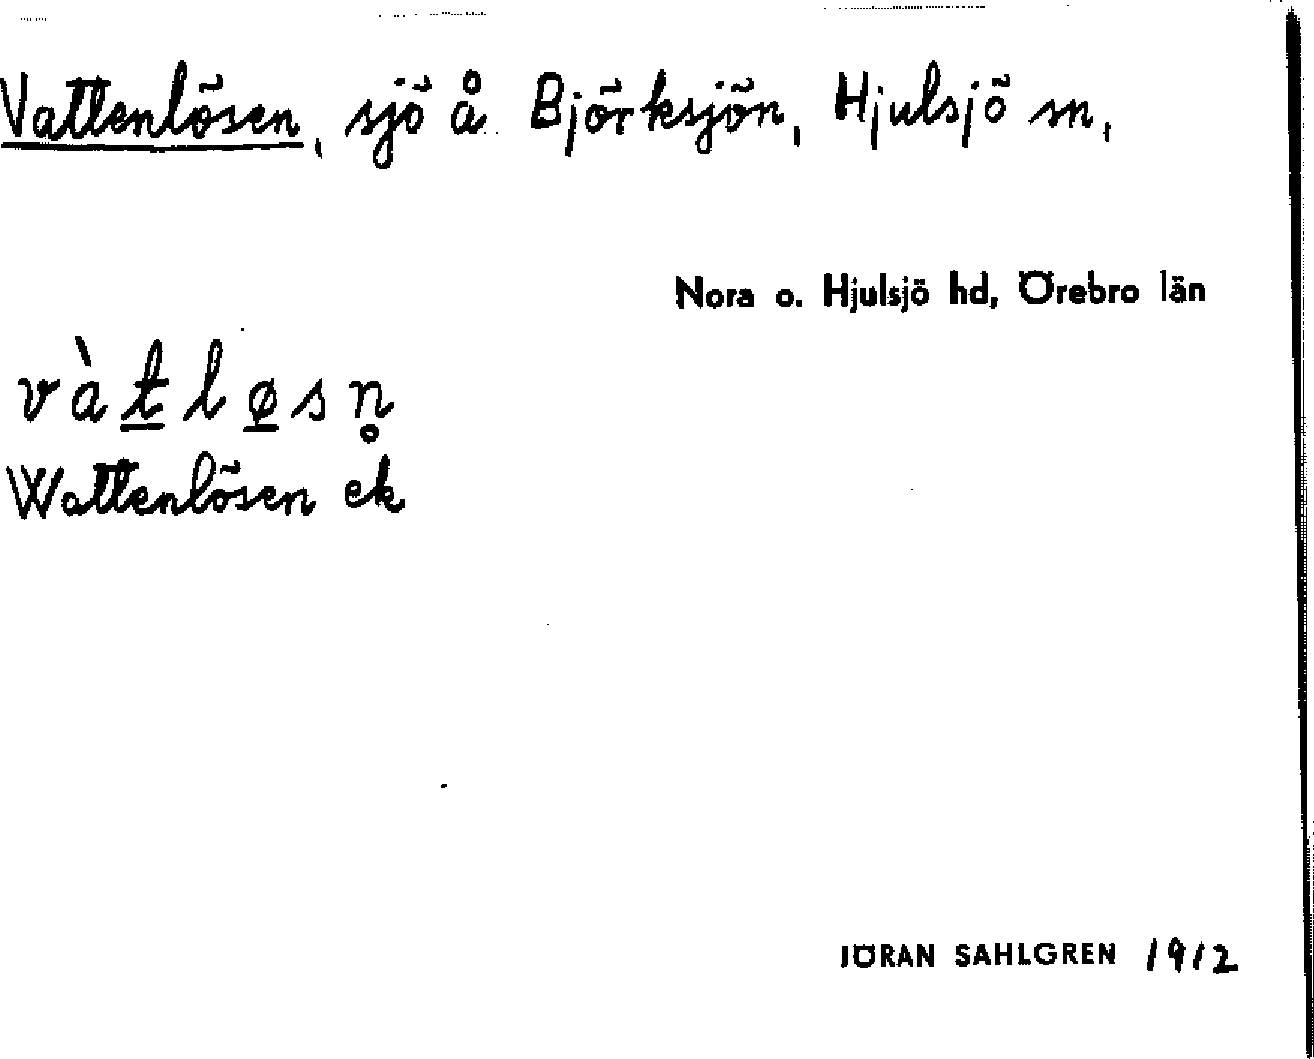 Vattenlösen, sjö å Björksjön, Hjulsjö sn,
Nora o. Hjulsjö hd, Örebro län
vàt̲lø̲sn̥
Wattenlösen ek
JÖRAN SAHLGREN 1912